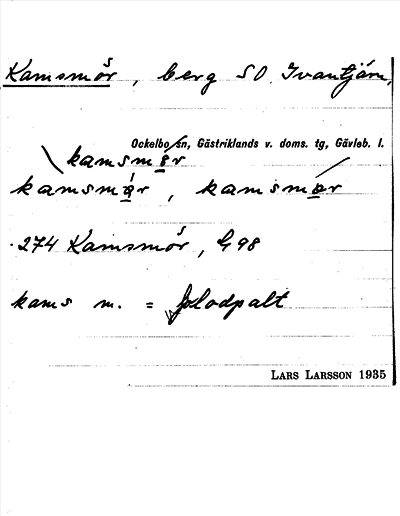 Kamsmör, berg SO Svantjärn,
Ockelbo sn, Gästriklands v. doms. tg, Gävleb. l.
kamsmər
kamsmạr, kamsmər
274 Kamsmör, G98
kams m. = blodpalt
LARS LARSSON 1935